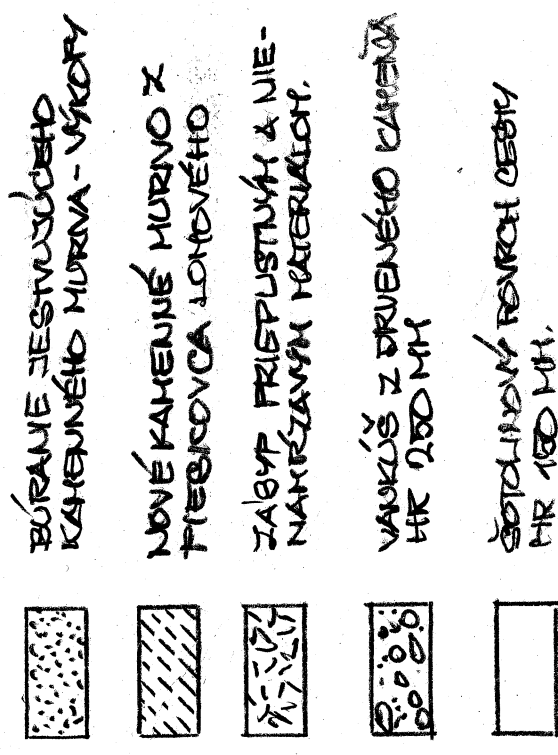 BÚRANIE JESTVUJÚCEHO
KAMENNÉHO MURIVA - VÝKOPY
NOVÉ KAMENNÉ MURIVO Z
PIESKOVCA LOMOVÉHO
ZÁSYP PRIEPUSTNÝM A NIE-
NAMŔZAVÝM MATERIÁLOM.
VANKÚŠ Z DRVENÉHO KAMEŇA
HR 250 MM
ŠTOLINOVÝ POVRCH CESTY
HR 150 MM.